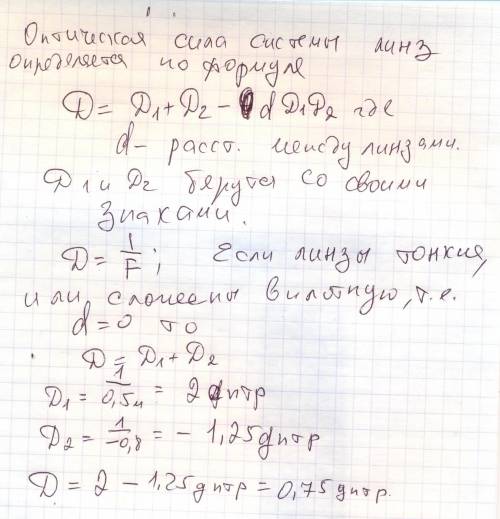 Оптическая сила системы линз
определяется по формуле
D = D1 + D2 - d D1D2 где
d - расст. между линзами.
D1 и D2 берутся со своими
знаками.
D = 1/F; Если линзы тонкие,
или сложены вплотную, т.е.
d = 0 то
D = D1 + D2
D1 = 1/0,5м = 2 дптр
D2 = 1/-0,8 = - 1,25 дптр
D = 2 - 1,25 дптр = 0,75 дптр.